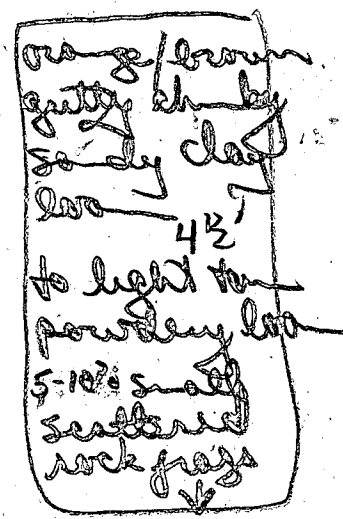 orange/brown
gritty chunky
sandy clay
loam
4½'
to light tan
powdery loam
5-10% small
scattered
rock frags